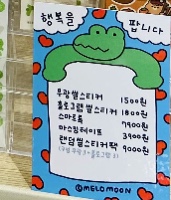 행복을 팝니다
무광씰스티커 1500원
홀로그램씰스티커 1800원
스마트톡 7900원
마스킹테이프 3900원
랜덤씰스티커팩 9000원
@MELOMOON